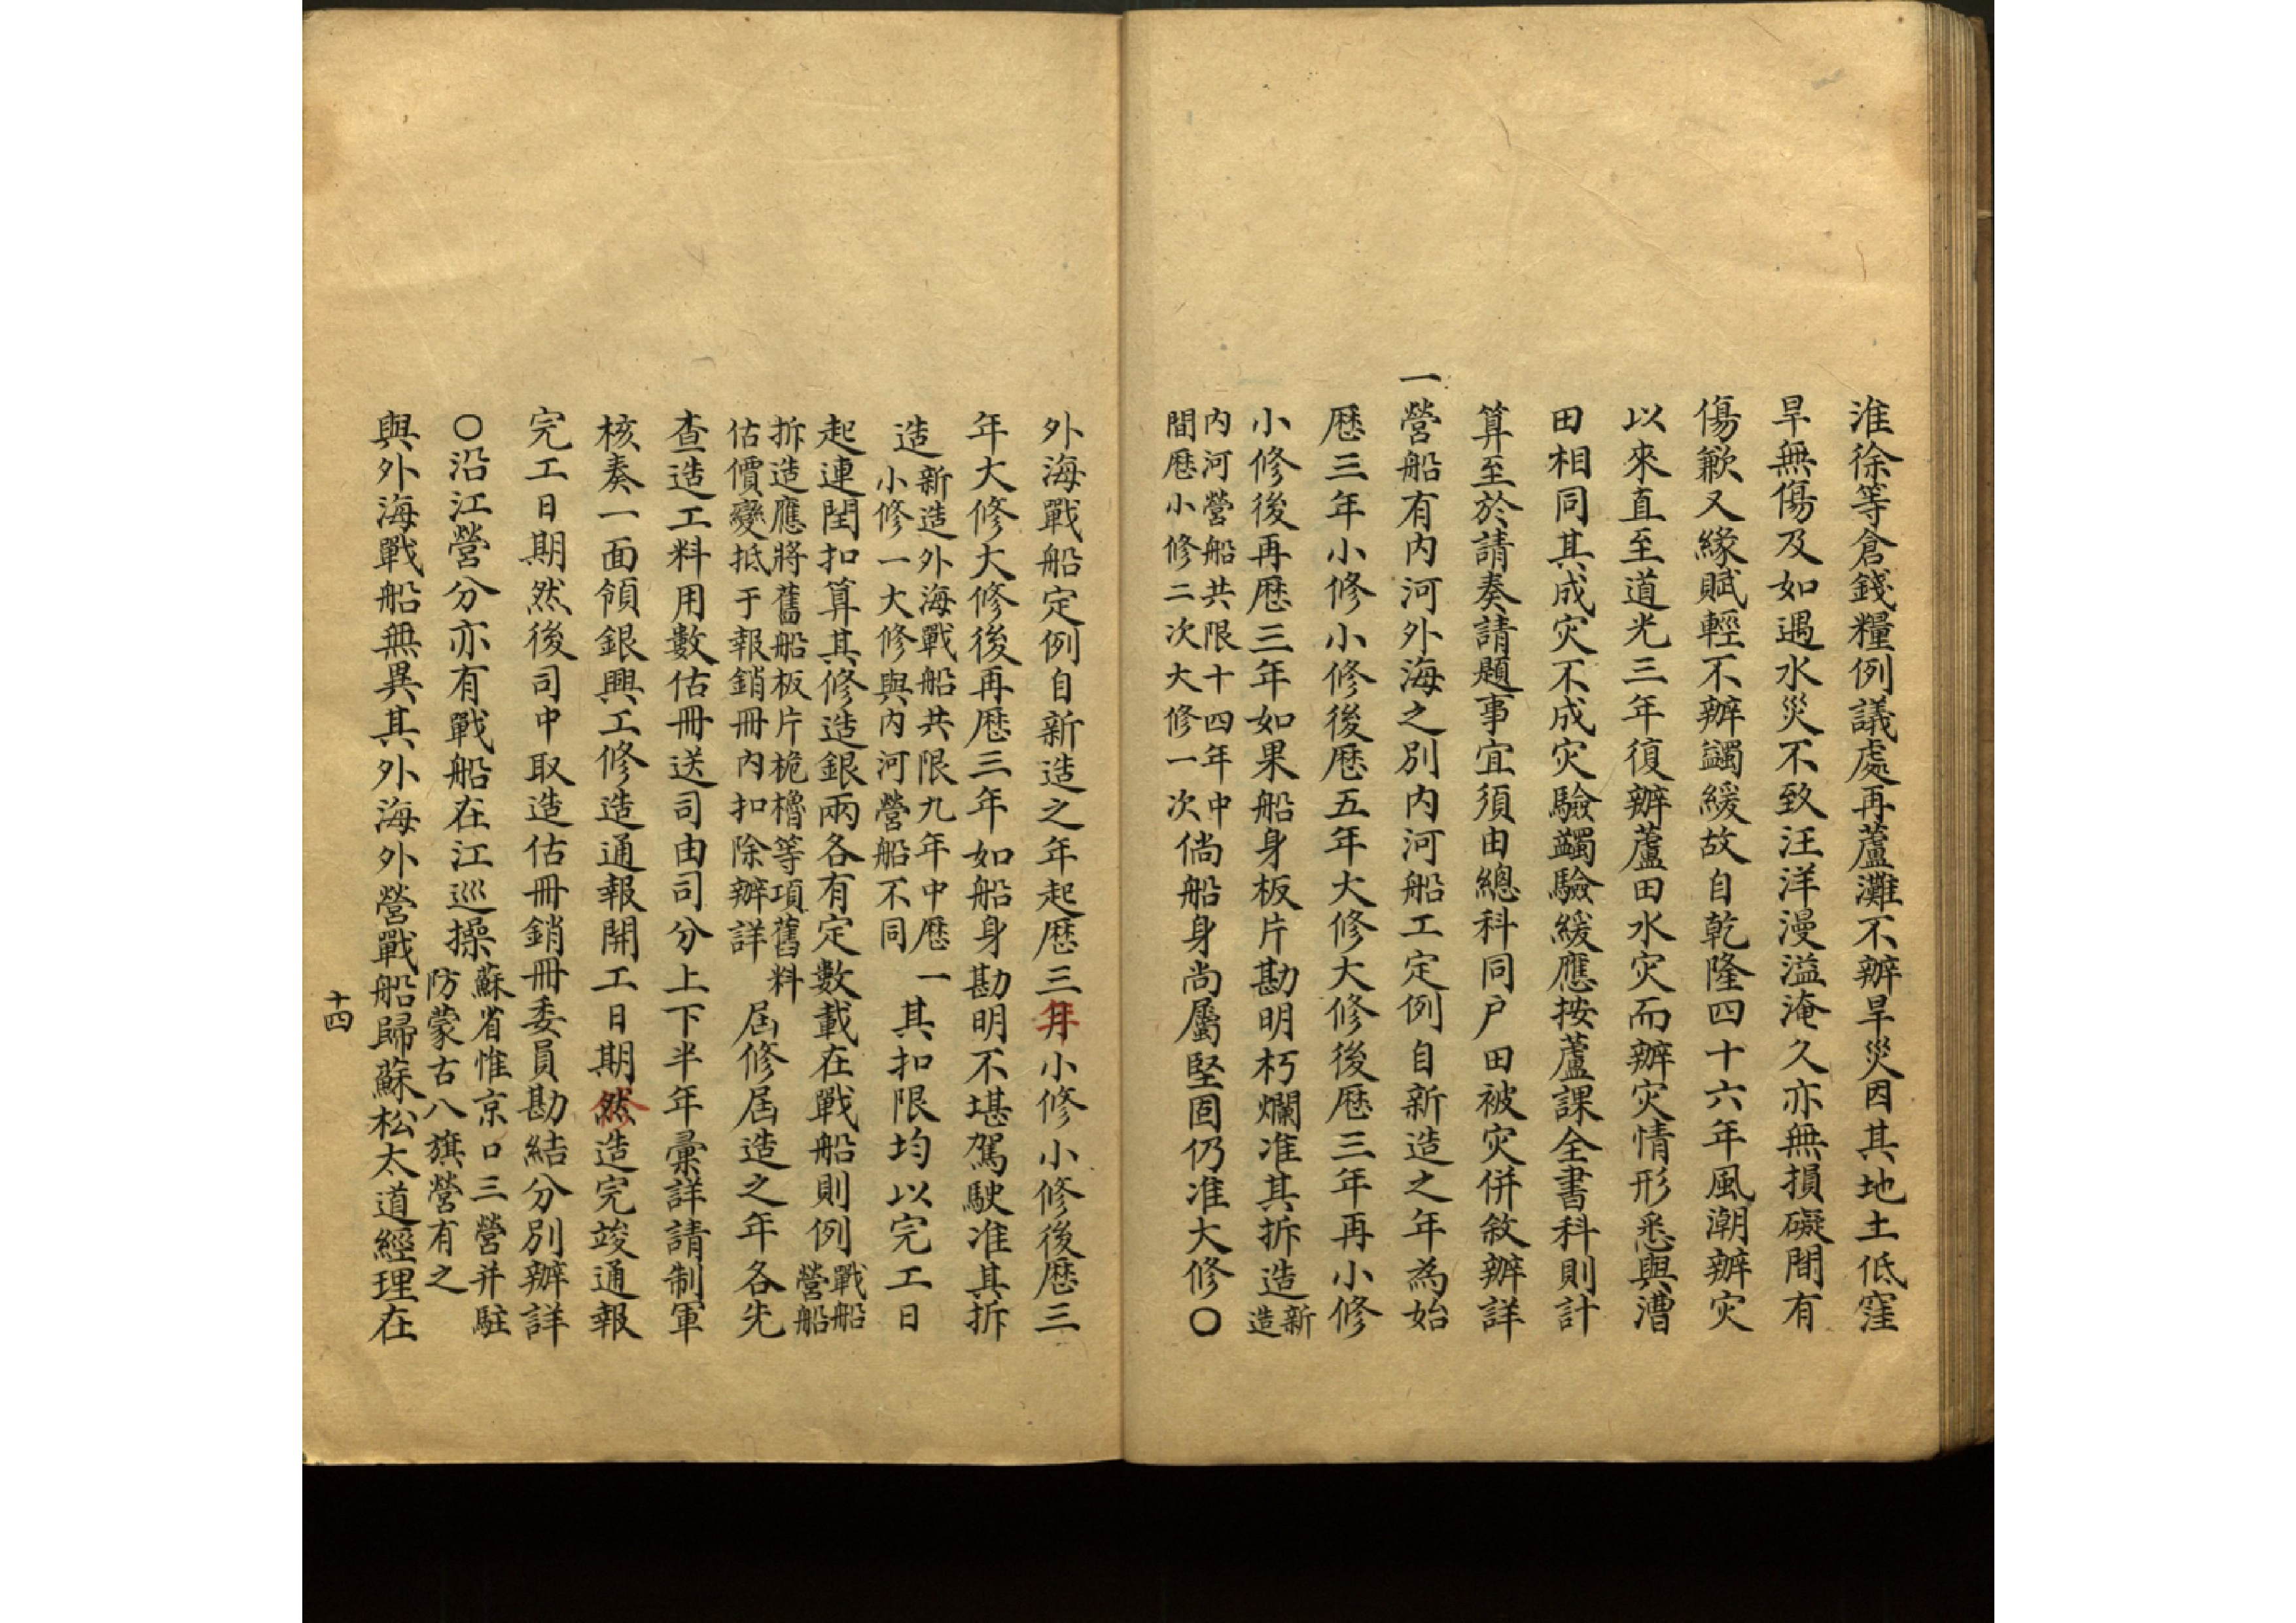 淮徐等倉錢糧例議處再蘆灘不辦旱災因其地土低窪
旱無傷及如遇水災不致汪洋漫溢淹久亦無損礙間有
傷歉又緣賦輕不辦蠲緩故自乾隆四十六年風潮辦灾
以來直至道光三年復辦蘆田水灾而辦灾情形悉與漕
田相同其成灾不成灾驗蠲驗緩應按蘆課全書科則計
算至於請奏請題事宜須由總科同户田被灾併敘辦詳
一營船有內河外海之別內河船工定例自新造之年為始
歷三年小修小修後歷五年大修大修後歷三年再小修
小修後再歷三年如果船身板片勘明朽爛准其拆造新造
內河營船共限十四年中間歷小修二次大修一次倘船身尚屬堅固仍准大修〇
外海戰船定例自新造之年起歷三年小修小修後歷三
年大修大修後再歷三年如船身勘明不堪駕駛准其拆
造新造外海戰船共限九年中歷一小修一大修與內河營船不同其扣限均以完工日
起連閏扣算其修造銀兩各有定數載在戰船則例戰船營船
拆造應將舊船板片桅櫓等項舊料估價變抵于報銷冊內扣除辦詳屆修屆造之年各先
查造工料用數估冊送司由司分上下半年彙詳請制軍
核奏一面領銀興工修造通報開工日期修造完竣通報
完工日期然後司中取造估冊銷冊委員勘結分別辦詳
〇沿江營分亦有戰船在江巡操蘇省惟京口三營并駐防蒙古八旗營有之
與外海戰船無異其外海外營戰船歸蘇松太道經理在
十四